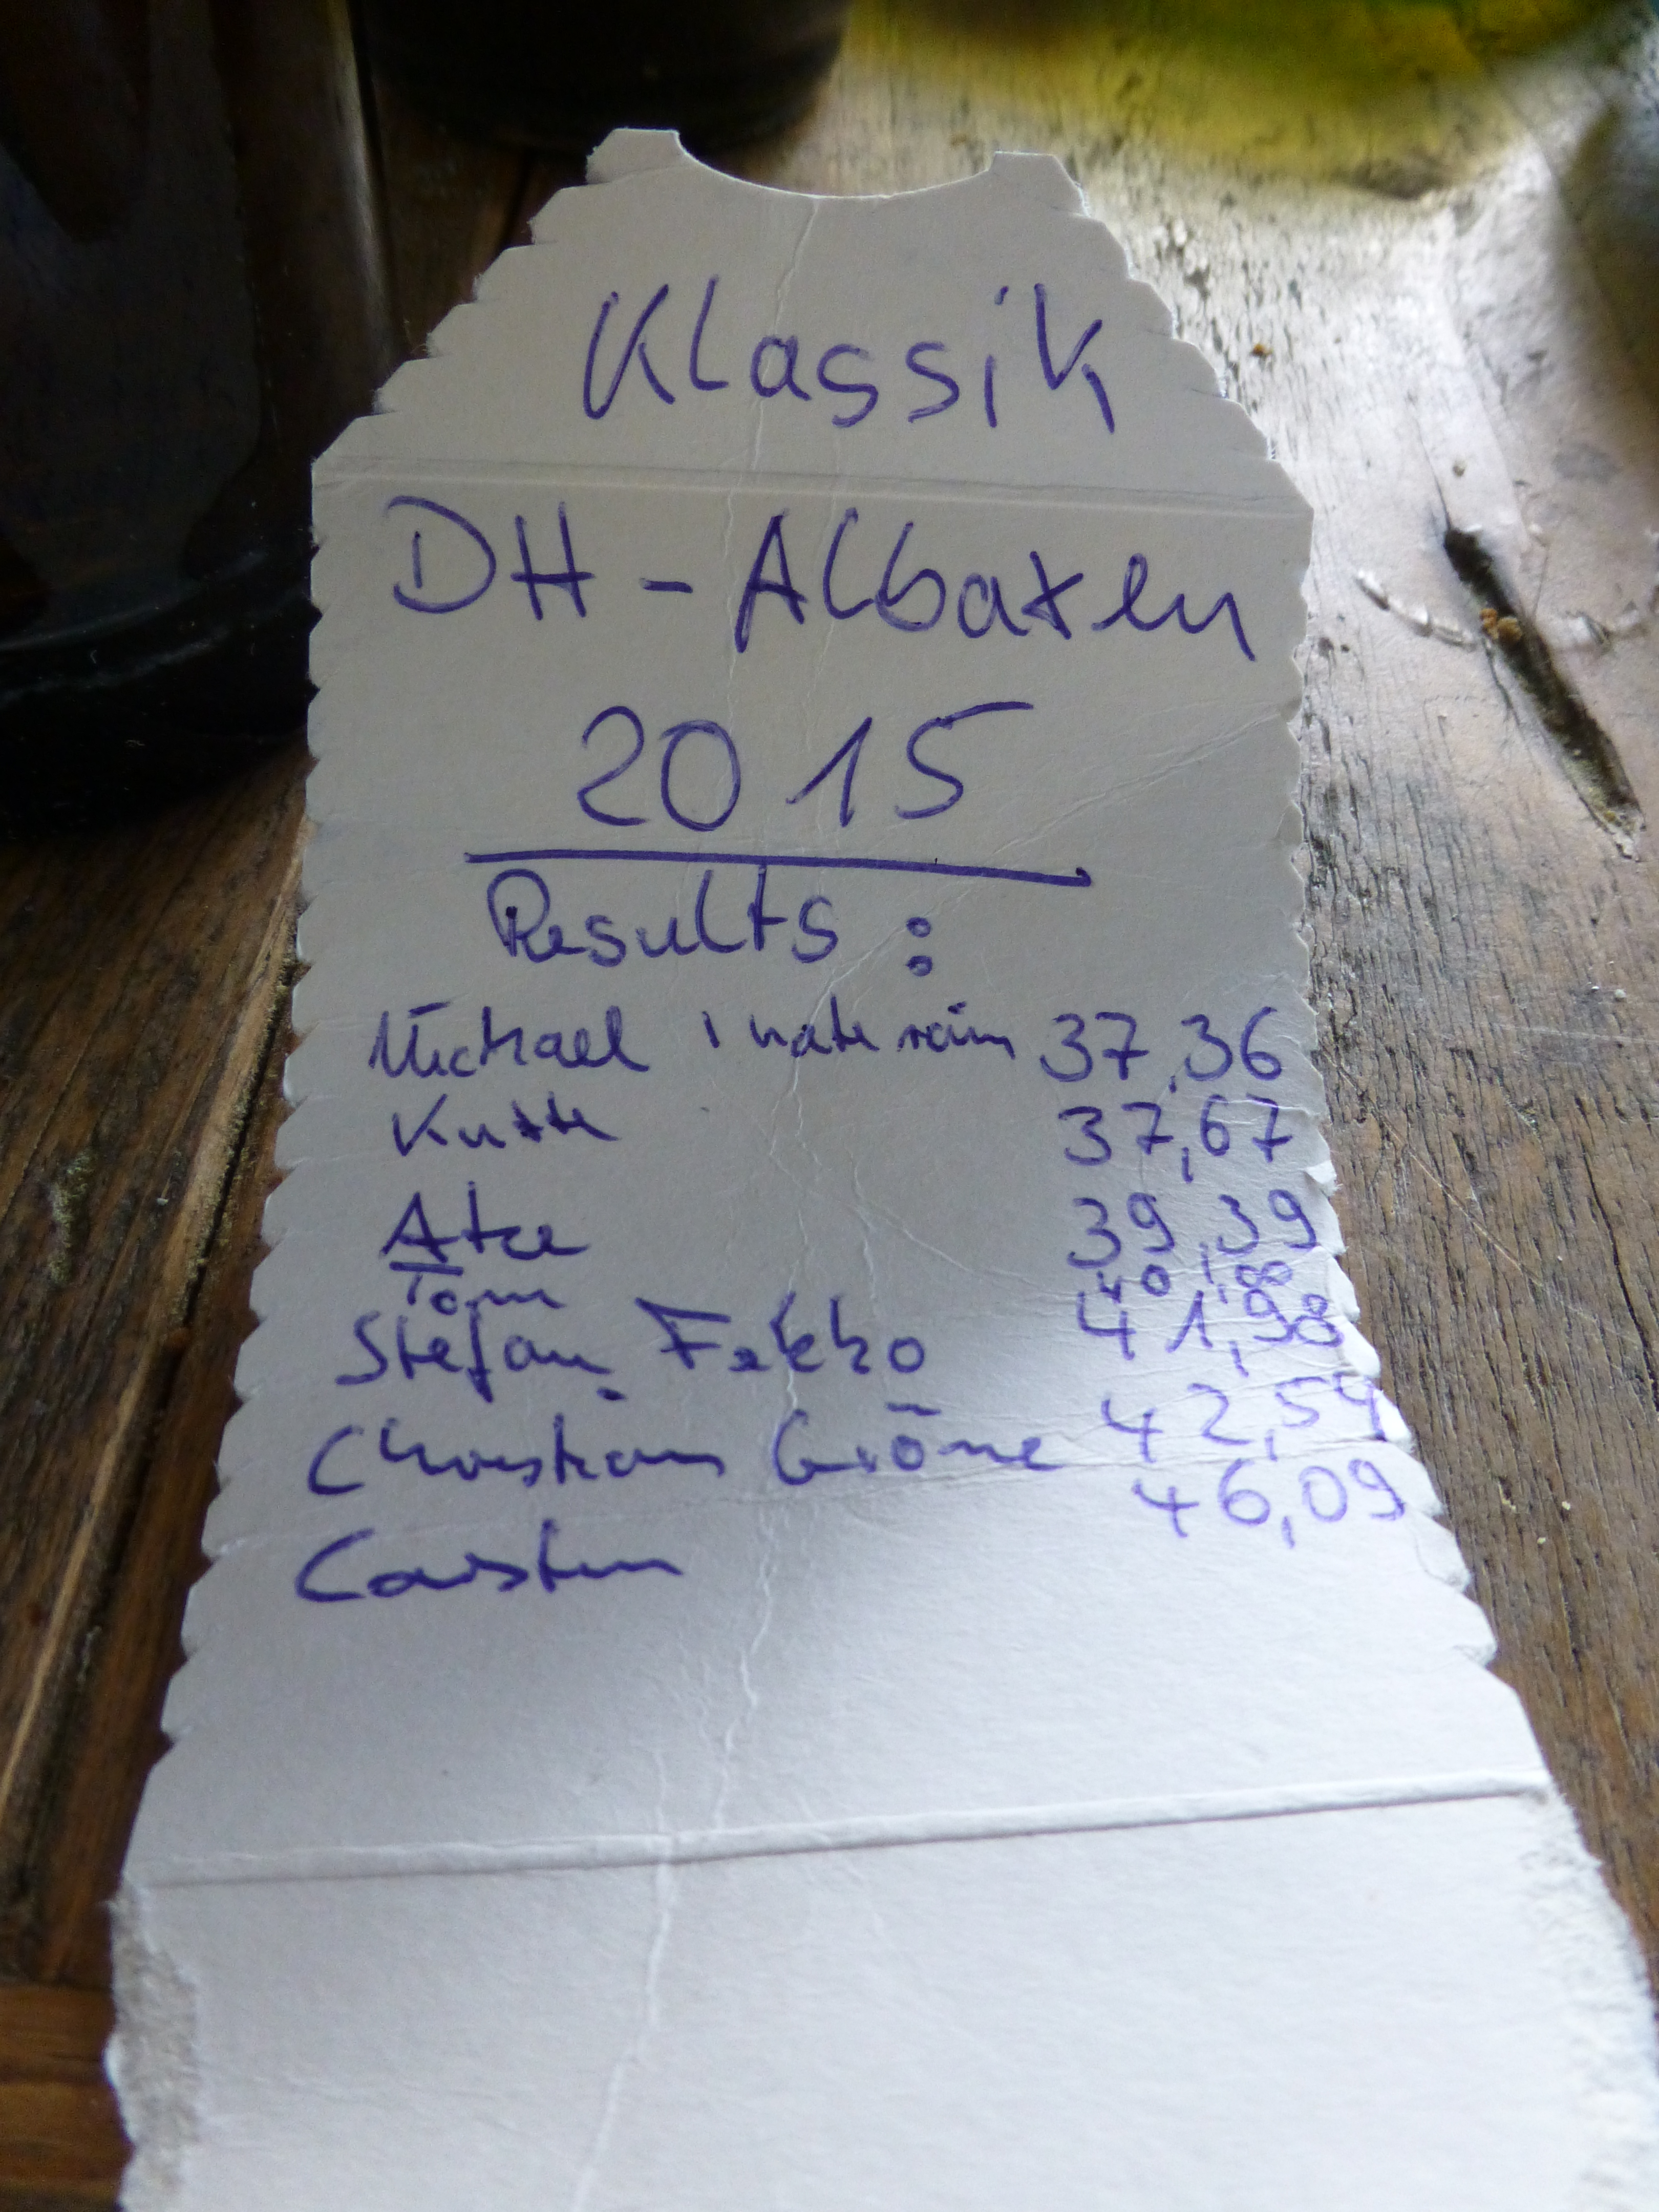 Klassik
DH-Albaxen
2015
Results:
Michael 37,36
Kutte 37,67
Atze 39,39
Tom 40,80
Stefan 41,98
Christian Gröne 42,59
Carsten 46,09